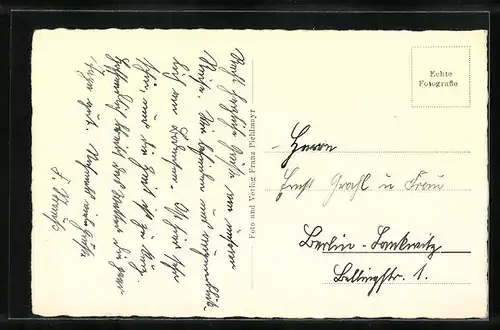 Recht herzliche Grüße von unserer
Reise. Wir befinden uns augenblick-
lich am Bodensee. Es ist hier sehr
schön, nur die Zeit ist zu kurz.
Hoffentlich bleibt das Wetter die paar
Tage gut. Nochmals viele Grüße
Foto und Verlag Franz Pichlmayr
Echte
Fotografie
Herrn
Ernst Grahl u Frau
Berlin-Lankwitz
Bellingstr. 1.